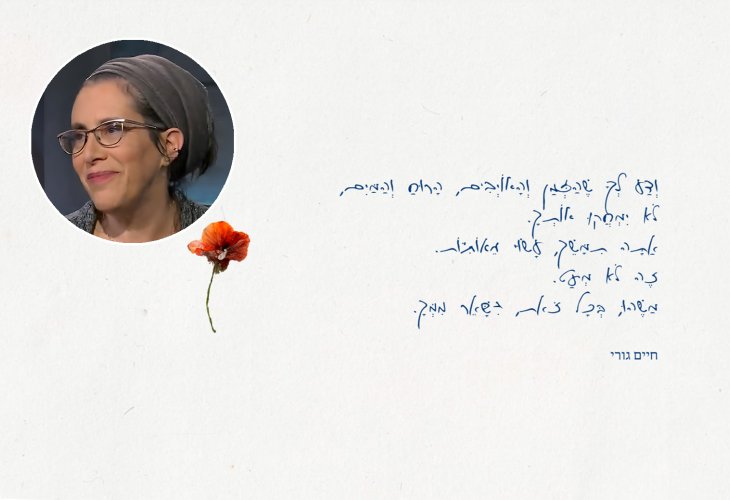 וְדַע לְךָ שֶׁהַזְּמַן וְהָאוֹיְבִים, הָרוּחַ וְהַמַּיִם,
לֹא יִמְחֲקוּ אוֹתְךָ.
אַתָּה תִמָּשֵׁךְ, עָשׂוּי מֵאוֹתִיּוֹת.
זֶה לֹא מְעַט.
מַשֶּׁהוּ, בְּכָל זֹאת, יִשָּׁאֵר מִמְּךָ.
חיים גורי